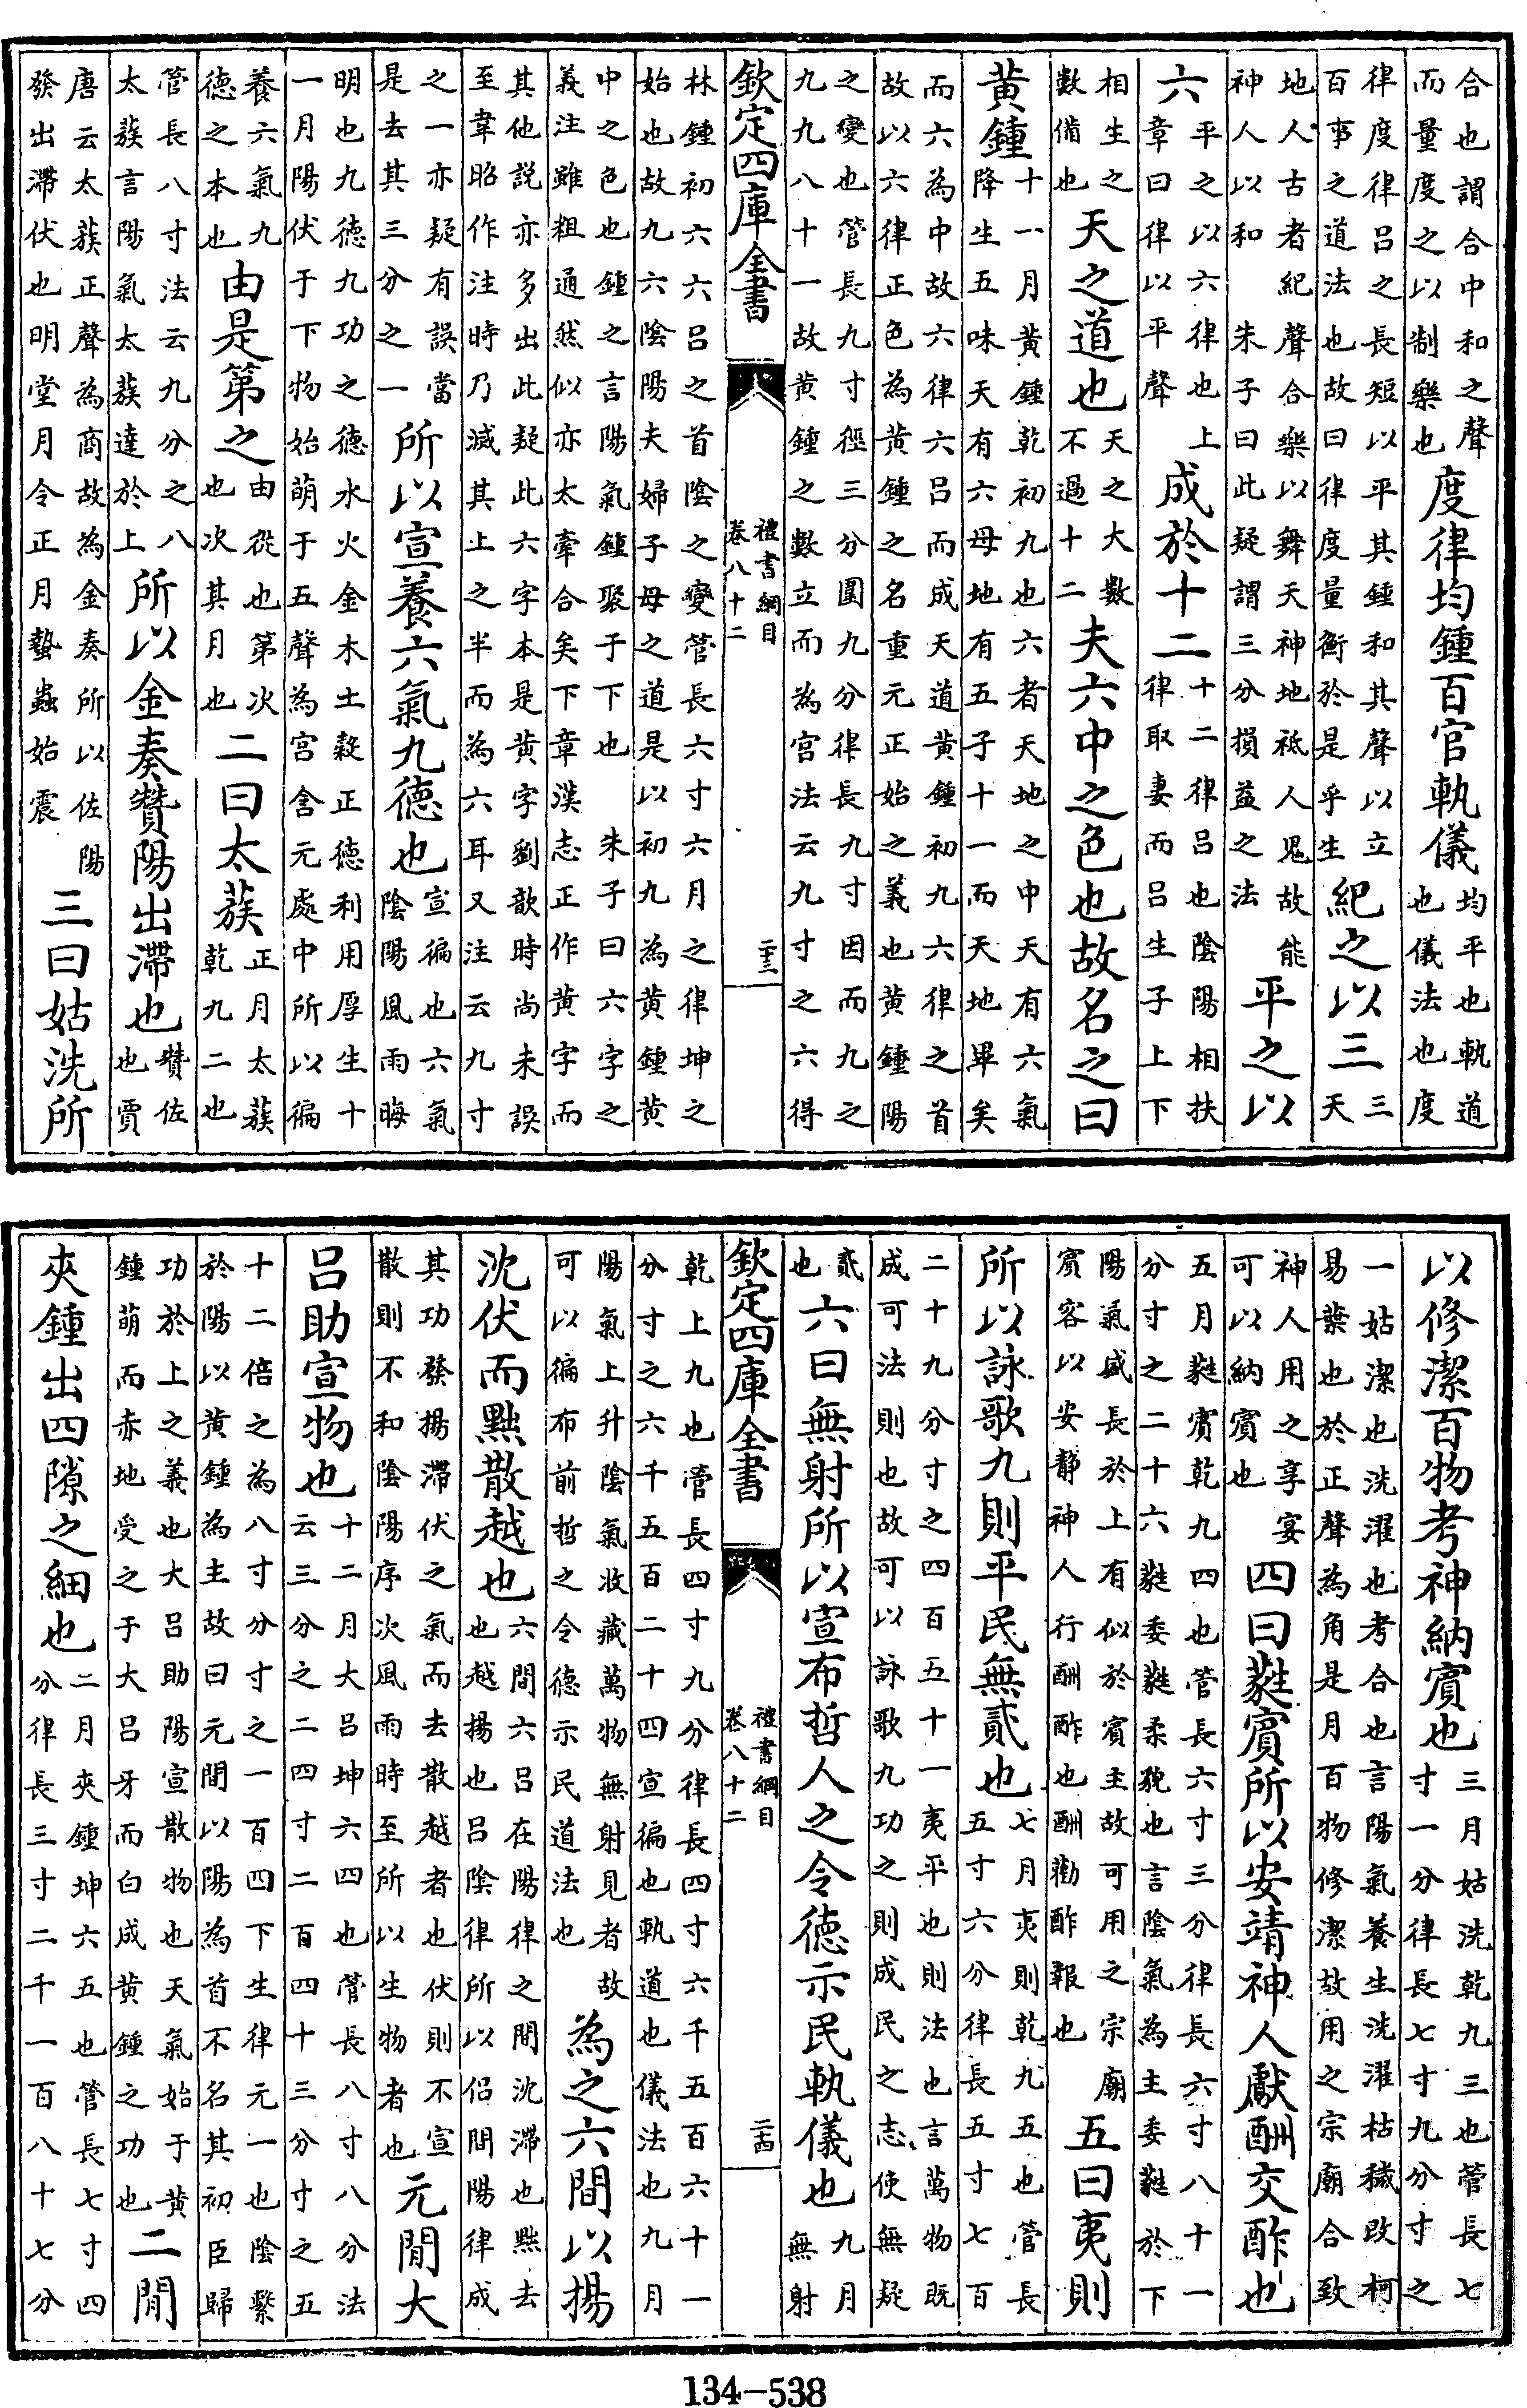 合也謂合中和之聲
而量度之以制樂也
度律均鍾百官軌儀
均平也軌道
也儀法也度
律度律呂之長短以平其鍾和其聲以立
百事之道法也故曰律度量衡於是乎生
紀之以三
三
天
地人古者紀聲合樂以舞天神地祇人鬼故能
神人以和　朱子曰此疑謂三分損益之法
平之以
六
平之以六律也上
章曰律以平聲
成於十二
十二律呂也陰陽相扶
律取妻而呂生子上下
相生之
數備也
天之道也
天之大數
不過十二
夫六中之色也故名之曰
黄鍾
十一月黄鍾乾初九也六者天地之中天有六氣
降生五味天有六母地有五子十一而天地畢矣
而六為中故六律六呂而成天道黄鍾初九六律之首
故以六律正色為黄鍾之名重元正始之義也黄鍾陽
之變也管長九寸徑三分圍九分律長九寸因而九之
九九八十一故黄鍾之數立而為宫法云九寸之六得
欽定四庫全書
禮書綱目
卷八十二
二十三
林鍾初六六呂之首陰之變管長六寸六月之律坤之
始也故九六陰陽夫婦子母之道是以初九為黄鍾黄
中之色也鍾之言陽氣鍾聚于下也　朱子曰六字之
義注雖粗通然似亦太牽合矣下章漢志正作黄字而
其他説亦多出此疑此六字本是黄字劉歆時尚未誤
至韋昭作注時乃滅其上之半而為六耳又注云九寸
之一亦疑有誤當
是去其三分之一
所以宣養六氣九德也
宣徧也六氣
陰陽風雨晦
明也九德九功之德水火金木土穀正德利用厚生十
一月陽伏于下物始萌于五聲為宫含元處中所以徧
養六氣九
德之本也
由是第之
由從也第次
也次其月也
二曰太蔟
正月太蔟
乾九二也
管長八寸法云九分之八
太蔟言陽氣太蔟達於上
所以金奏贊陽出滯也
贊佐
也賈
唐云太蔟正聲為商故為金奏所以佐陽
發出滯伏也明堂月令正月蟄蟲始震
三曰姑洗所
以修潔百物考神納賓也
三月姑洗乾九三也管長七
寸一分律長七寸九分寸之
一姑潔也洗濯也考合也言陽氣養生洗濯枯穢改柯
易葉也於正聲為角是月百物修潔故用之宗廟合致
神人用之享宴
可以納賓也
四曰蕤賓所以安靖神人獻酬交酢也
五月蕤賓乾九四也管長六寸三分律長六寸八十一
分寸之二十六蕤委蕤柔貌也言陰氣為主委蕤於下
陽氣盛長於上有似於賓主故可用之宗廟
賓客以安静神人行酬酢也酬勸酢報也
五曰夷則
所以詠歌九則平民無貳也
七月夷則乾九五也管長
五寸六分律長五寸七百
二十九分寸之四百五十一夷平也則法也言萬物既
成可法則也故可以詠歌九功之則成民之志使無疑
貳
也
六曰無射所以宣布哲人之令德示民軌儀也
九月
無射
乾上九也管長四寸九分律長四寸六千五百六十一
分寸之六千五百二十四宣徧也軌道也儀法也九月
欽定四庫全書
禮書綱目
卷八十二
二十四
陽氣上升陰氣收藏萬物無射見者故
可以徧布前哲之令德示民道法也
為之六間以揚
沈伏而黜散越也
六間六呂在陽律之間沈滯也黜去
也越揚也呂陰律所以侣間陽律成
其功發揚滯伏之氣而去散越者也伏則不宣
散則不和陰陽序次風雨時至所以生物者也
元間大
呂助宣物也
十二月大呂坤六四也管長八寸八分法
云三分之二四寸二百四十三分寸之五
十二倍之為八寸分寸之一百四下生律元一也陰繫
於陽以黄鍾為主故曰元間以陽為首不名其初臣歸
功於上之義也大呂助陽宣散物也天氣始于黄
鍾萌而赤地受之于大呂牙而白成黄鍾之功也
二間
夾鍾出四隙之細也
二月夾鍾坤六五也管長七寸四
分律長三寸二千一百八十七分
134-538